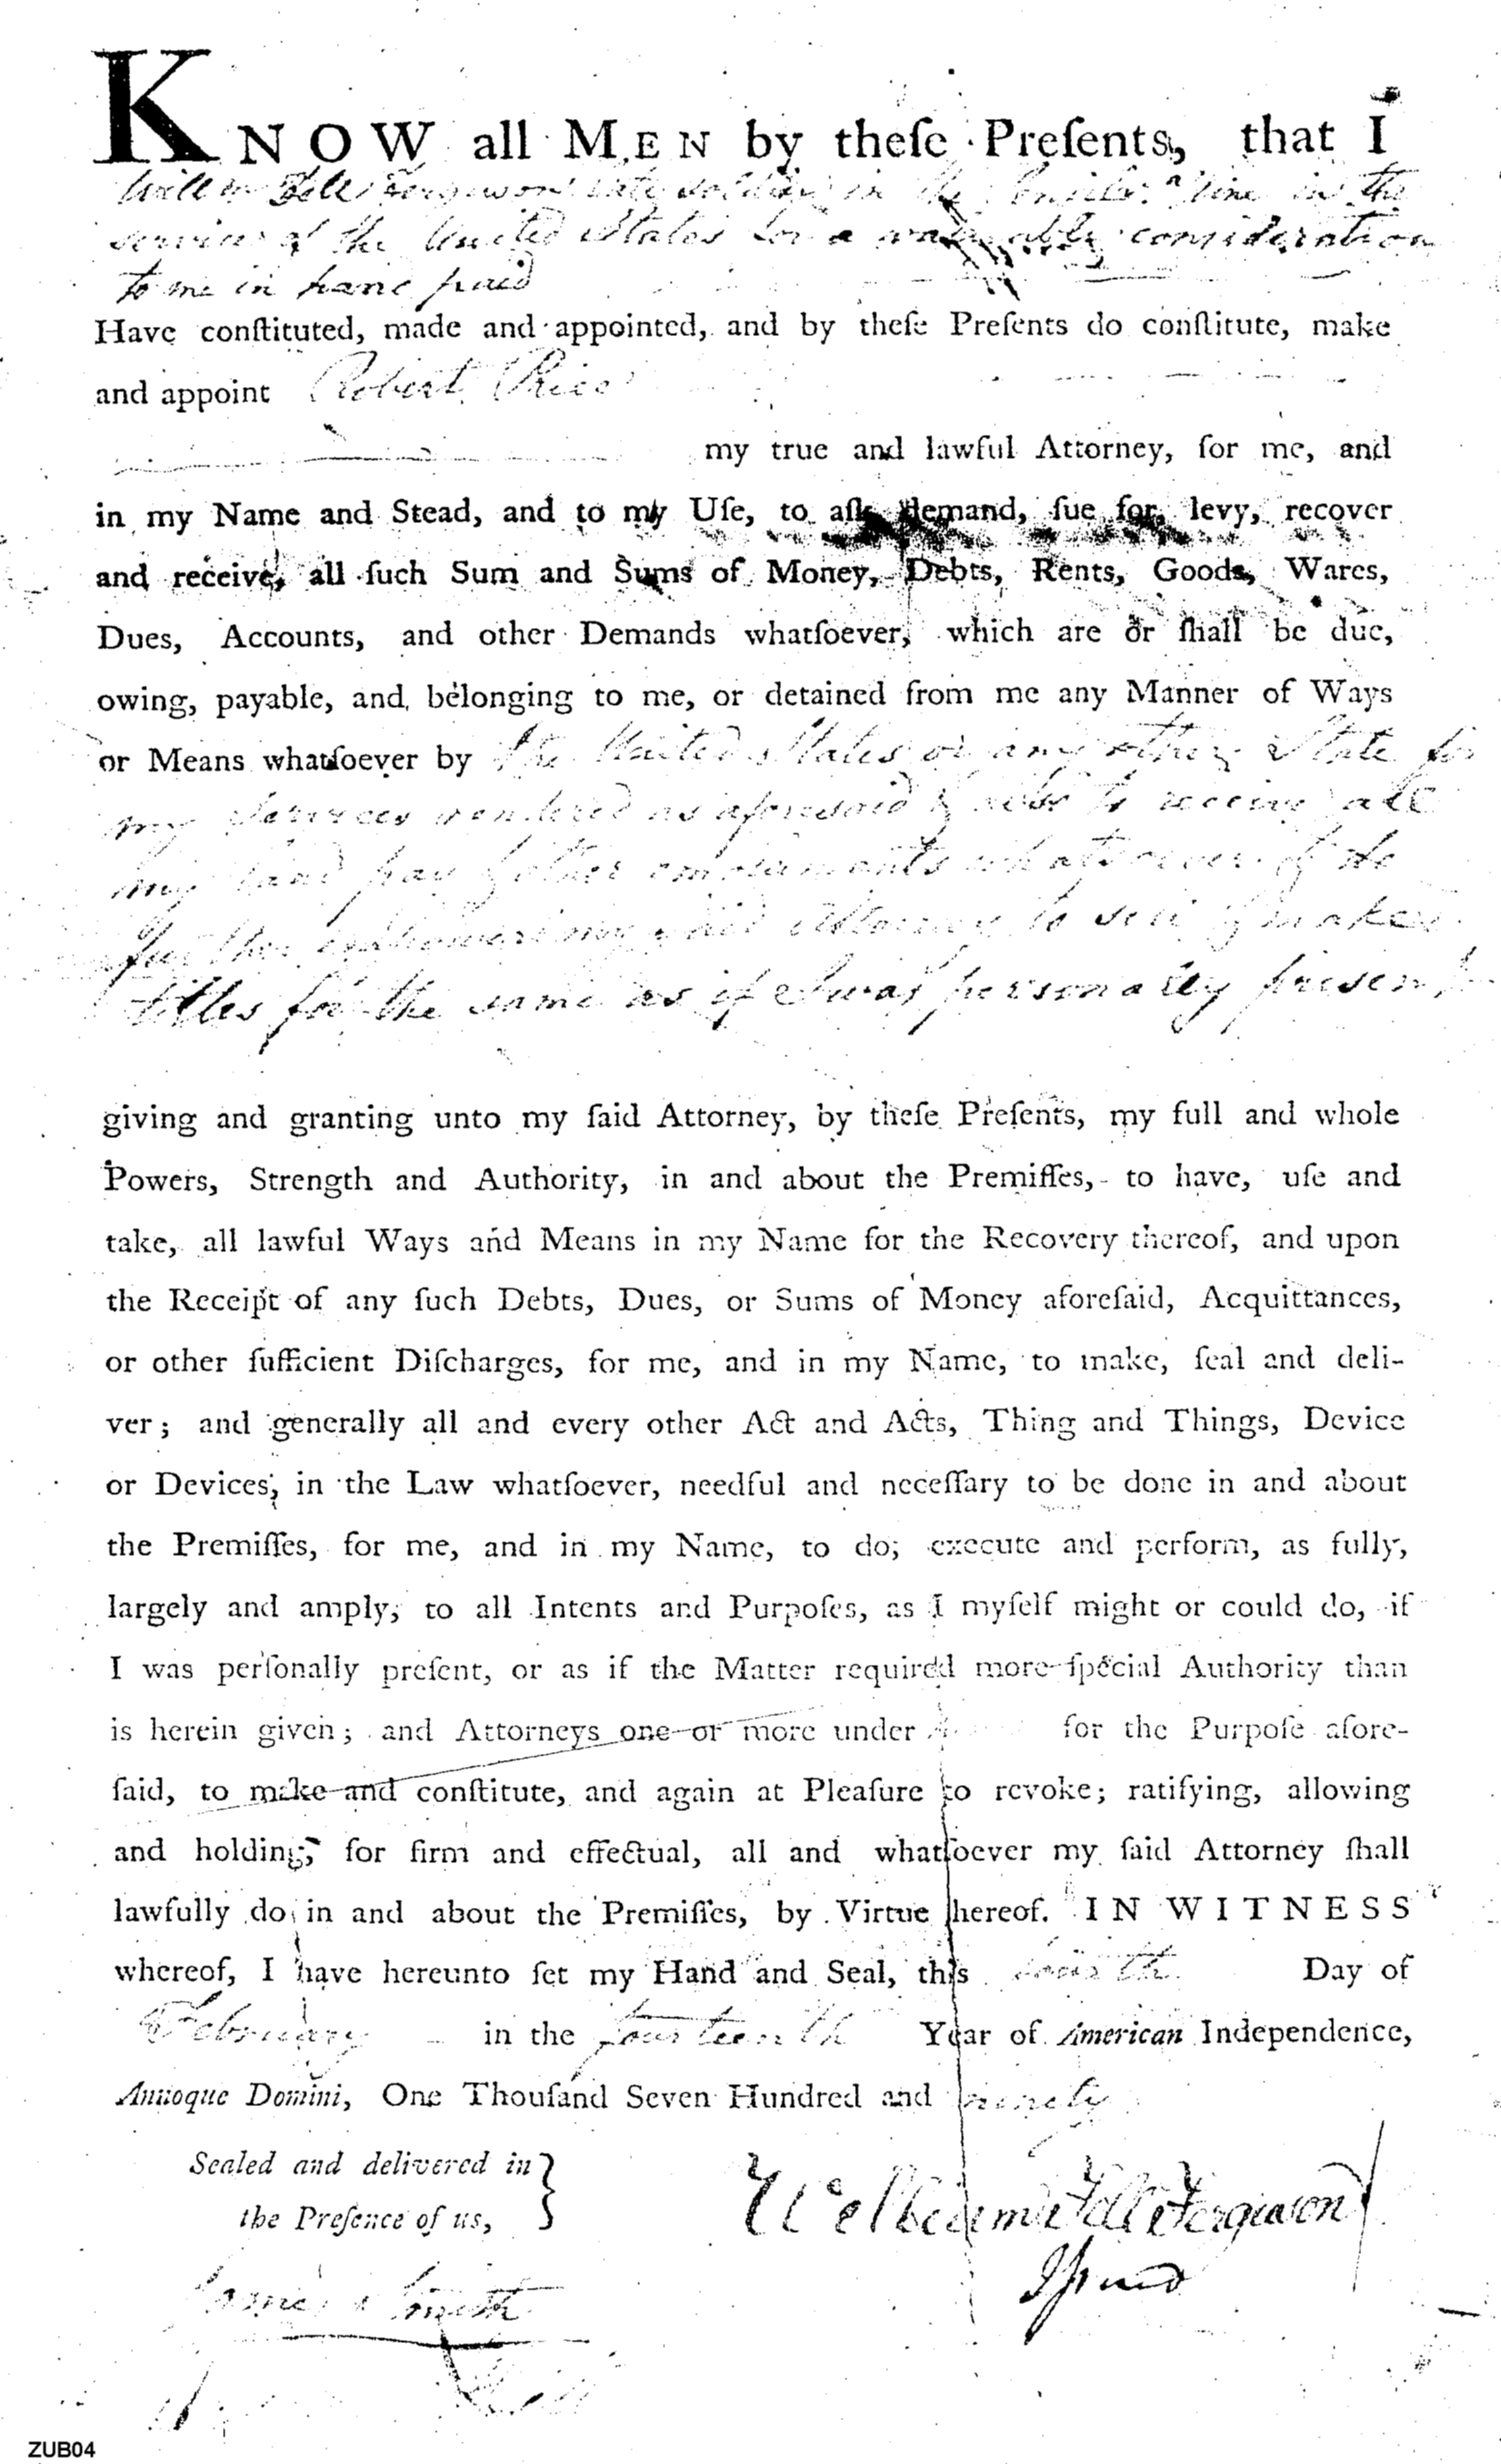 KNOW all MEN by theſe Preſents, that I
late soldier in the line in the
service of the United States for a valuable consideration
to me in hand paid
Have conſtituted, made and appointed, and by theſe Preſents do conſtitute, make
and appoint Robert Price
my true and lawful Attorney, for me, and
in my Name and Stead, and to my Uſe, to aſk, demand, ſue for, levy, recover
and receive, all ſuch Sum and Sums of Money, Debts, Rents, Goods, Wares,
Dues, Accounts, and other Demands whatſoever, which are or ſhall be due,
owing, payable, and belonging to me, or detained from me any Manner of Ways
or Means whatſoever by the United States or any other State for
my Services rendered as aforesaid & also to receive all
my land pay & other whatsoever & do
further my said Attorney to sell & make
titles for the same as if I was personally present
giving and granting unto my ſaid Attorney, by theſe Preſents, my full and whole
Powers, Strength and Authority, in and about the Premiſſes, to have, uſe and
take, all lawful Ways and Means in my Name for the Recovery thereof, and upon
the Receipt of any ſuch Debts, Dues, or Sums of Money aforeſaid, Acquittances,
or other ſufficient Diſcharges, for me, and in my Name, to make, ſeal and deli-
ver; and generally all and every other Act and Acts, Thing and Things, Device
or Devices, in the Law whatſoever, needful and neceſſary to be done in and about
the Premiſſes, for me, and in my Name, to do, execute and perform, as fully,
largely and amply, to all Intents and Purpoſes, as I myſelf might or could do, if
I was perſonally preſent, or as if the Matter required more ſpecial Authority than
is herein given; and Attorneys one or more under for the Purpoſe afore-
ſaid, to make and conſtitute, and again at Pleaſure to revoke; ratifying, allowing
and holding, for firm and effectual, all and whatſoever my ſaid Attorney ſhall
lawfully do in and about the Premiſſes, by Virtue hereof. IN WITNESS
whereof, I have hereunto ſet my Hand and Seal, this fourth Day of
February in the fourteenth Year of American Independence,
Annoque Domini, One Thouſand Seven Hundred and ninety
Sealed and delivered in
the Preſence of us,
Ferguson
James Smith
ZUB04